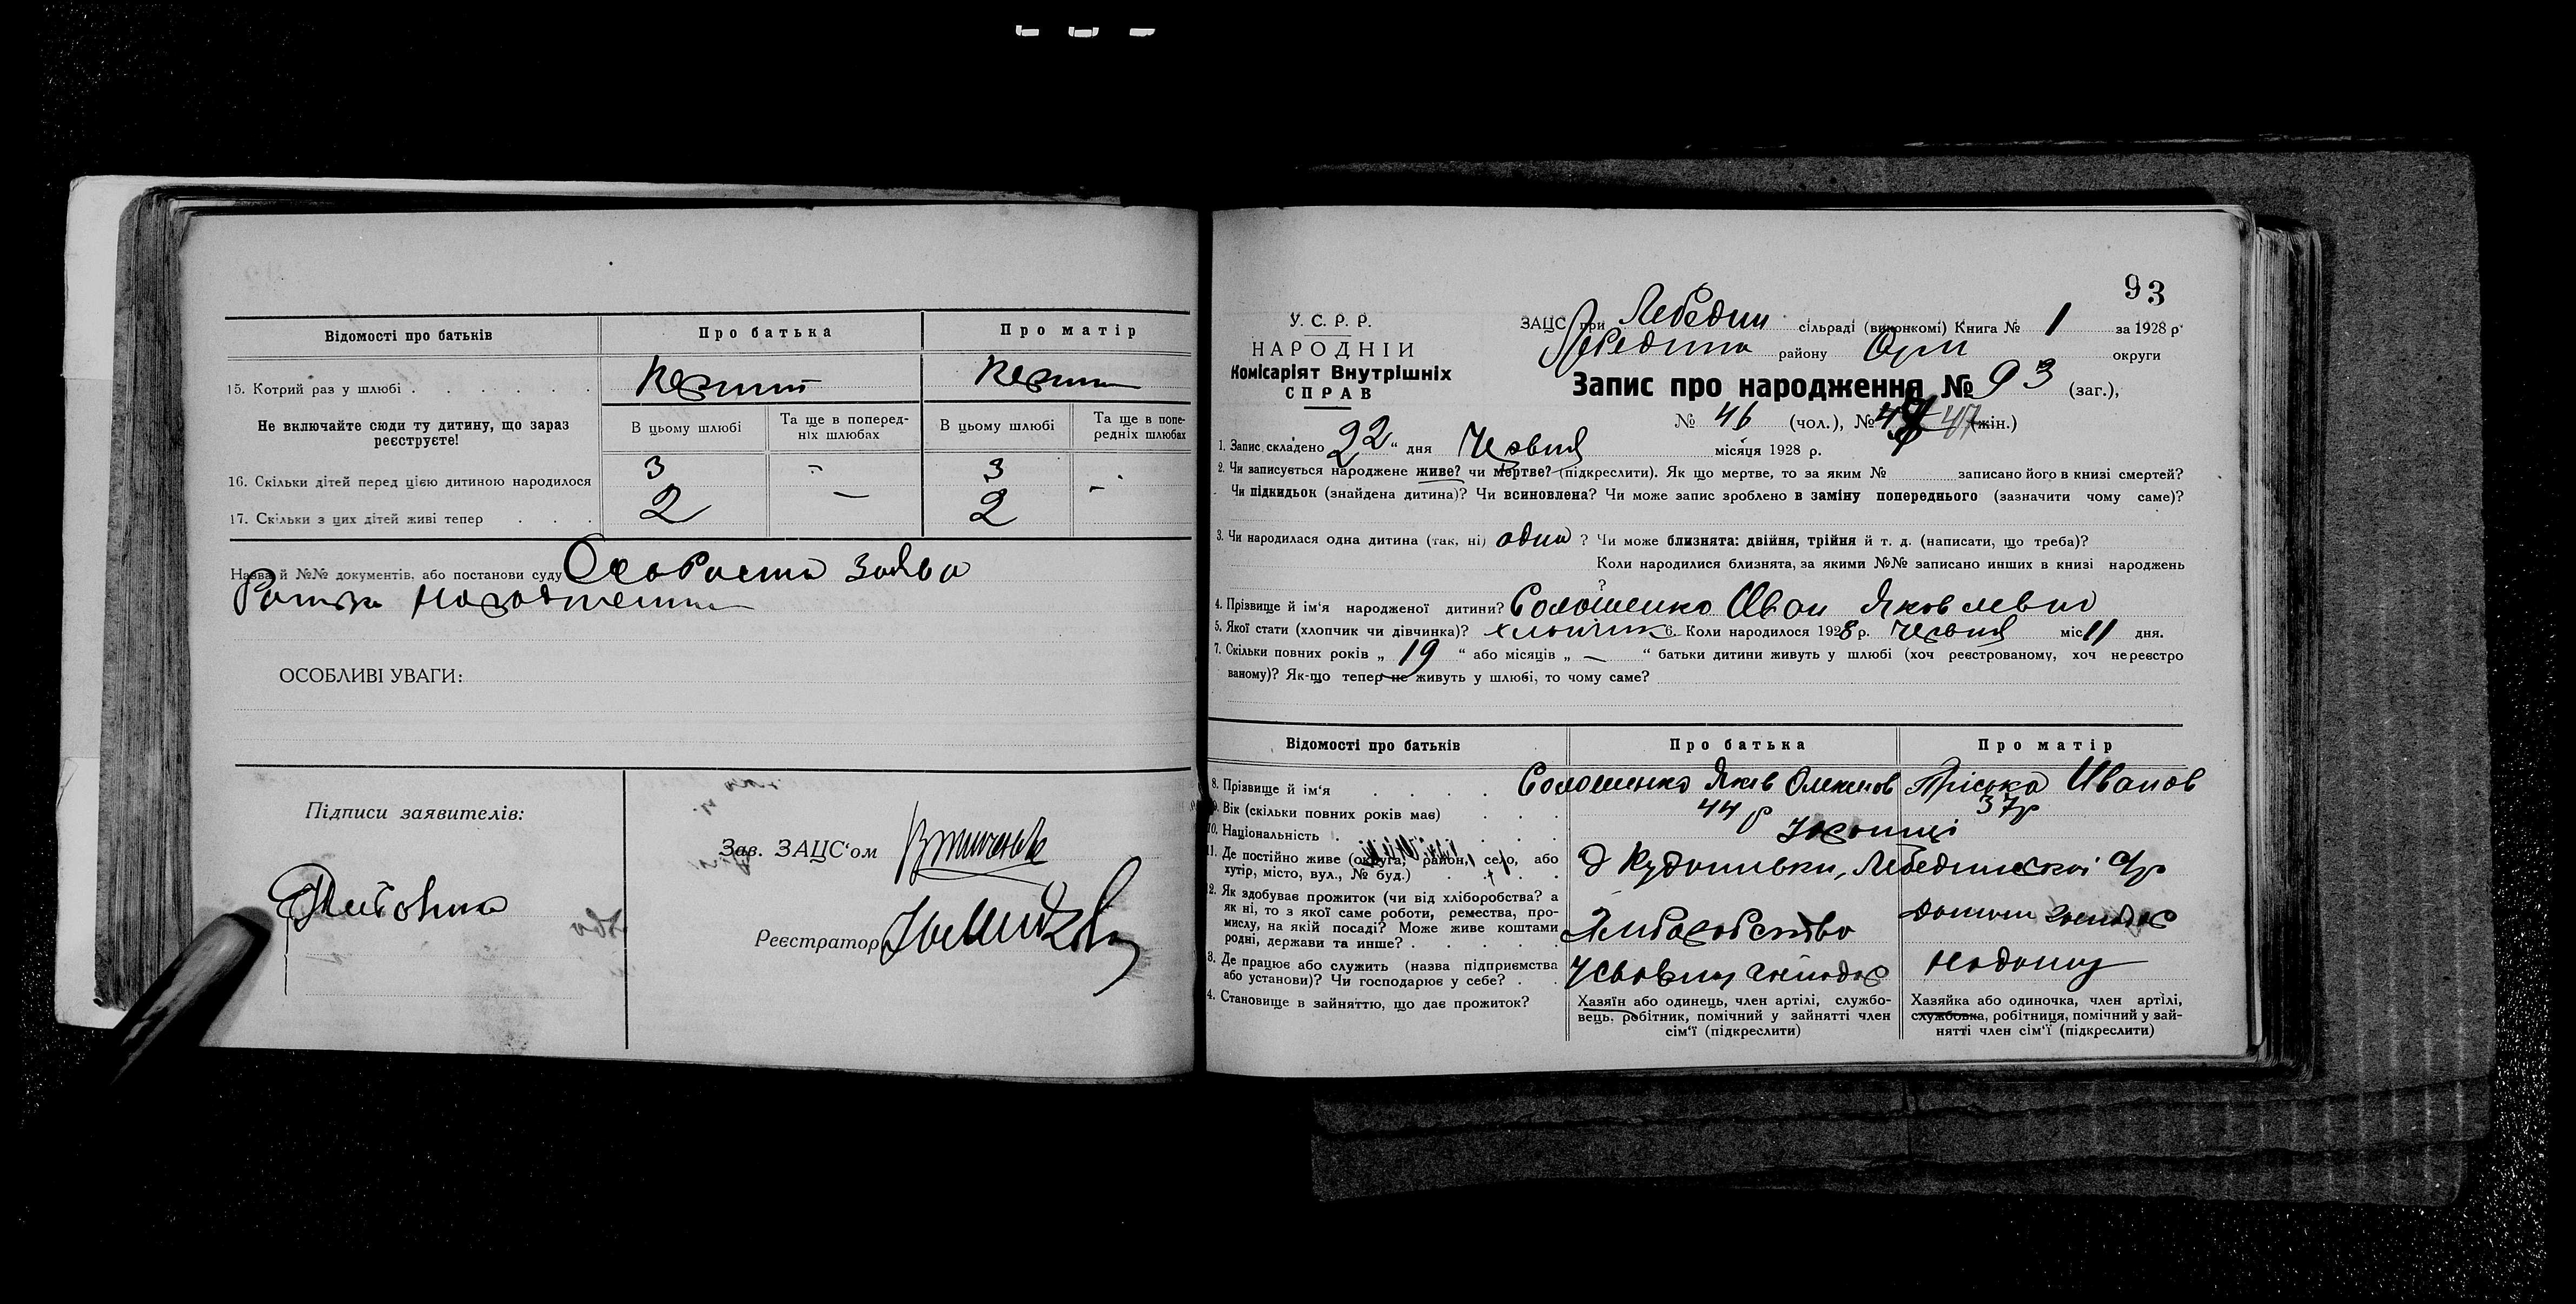 Відомості про батьків
Про батька
Про матір
15. Котрий раз у шлюбі . . . . . .
Не включайте сюди ту дитину, що зараз
реєструєте!
В цьому шлюбі
Та ще в поперед-
ніх шлюбах
В цьому шлюбі
Та ще в попе-
редніх шлюбах
16. Скільки дітей перед цією дитиною народилося
3
–
3
17. Скільки з цих дітей живі тепер . . .
2
—
2
–
Назва й №№ документів, або постанови суду
заява
ОСОБЛИВІ УВАГИ:
Підписи заявителів:
Зав. ЗАЦС‘ом
Реєстратор
93
У. С. Р. Р.
НАРОДНІЙ
Комісаріят Внутрішніх
СПРАВ
ЗАЦС при Лебедин сільраді (виконкомі) Книга № 1 за 1928 р
району округи
Запис про народження № 93 (заг.),
№ 46 (чол.), № 47 (жін.)
1. Запис складено 22 “ дня Червня місяця 1928 р.
2. Чи записується народжене живе? чи мертве? (підкреслити). Як що мертве, то за яким № записано його в книзі смертей?
Чи підкидьок (знайдена дитина)? Чи всиновлена? Чи може запис зроблено в заміну попереднього (зазначити чому саме)?
3. Чи народилася одна дитина (так, ні) одна ? Чи може близнята: двійня, трійня й т. д. (написати, що треба)?
Коли народилися близнята, за якими №№ записано инших в книзі народжень
?
4. Прізвище й ім‘я народженої дитини? Соломенко Іван Яковлевич
5. Якої стати (хлопчик чи дівчинка)? хлопчик 6. Коли народилося 1928 р. Червня міс 11 дня.
7. Скільки повних років „ 19 “ або місяців „ — “ батьки дитини живуть у шлюбі (хоч реєстрованому, хоч нереєстро
ваному)? Як-що тепер не живуть у шлюбі, то чому саме?
Відомості про батьків
Про батька
Про матір
8. Прізвище й ім‘я . . . .
Соломенко Яків
Пріська Иванов
9. Вік (скільки повних років має) . . .
44 р
37 р
10. Національність
11. Де постійно живе (округа, район, село, або
хутір, місто, вул., № буд.)
12. Як здобуває прожиток (чи від хліборобства? а
як ні, то з якої саме роботи, ремества, про-
мислу, на якій посаді? Може живе коштами
родні, держави та инше? . . . .
Хліборобство
13. Де працює або служить (назва підприємства
або установи)? Чи господарює у себе? . .
4. Становище в зайняттю, що дає прожиток?
Хазяїн або одинець, член артілі, службо-
вець, робітник, помічний у зайнятті член
сім‘ї (підкреслити)
Хазяйка або одиночка, член артілі,
службовка, робітниця, помічний у зай-
нятті член сім‘ї (підкреслити)